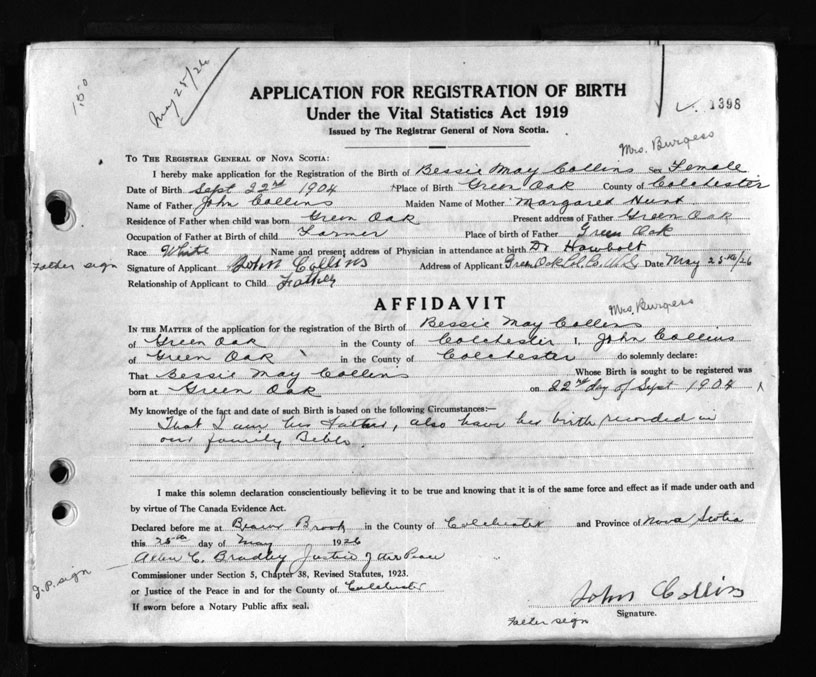 1.50
May 25/26
APPLICATION FOR REGISTRATION OF BIRTH
Under the Vital Statistics Act 1919
Issued by The Registrar General of Nova Scotia.
1398
Mrs. Burgess
TO THE REGISTRAR GENERAL OF NOVA SCOTIA:
I hereby make application for the Registration of the Birth of Bessie May Collins Sex Female
Date of Birth Sept 22nd 1904 Place of Birth Green Oak County of Colchester
Name of Father John Collins Maiden Name of Mother Margaret Hunt
Residence of Father when child was born Green Oak Present address of Father Green Oak
Occupation of Father at Birth of child Farmer Place of birth of Father Green Oak
Race White Name and present address of Physician in attendance at birth Dr Hawbolt
Father sign Signature of Applicant John Collins Address of Applicant Green Oak Col. Co. N.S. Date May 25th/26
Relationship of Applicant to Child Father
AFFIDAVIT
Mrs. Burgess
IN THE MATTER of the application for the registration of the Birth of Bessie May Collins
of Green Oak in the County of Colchester I, John Collins
of Green Oak in the County of Colchester do solemnly declare:
That Bessie May Collins Whose Birth is sought to be registered was
born at Green Oak on 22nd day of Sept 1904
My knowledge of the fact and date of such Birth is based on the following Circumstances:—
That I am her father, also have her birth recorded in
our family Bible.
I make this solemn declaration conscientiously believing it to be true and knowing that it is of the same force and effect as if made under oath and
by virtue of The Canada Evidence Act.
Declared before me at Beaver Brook in the County of Colchester and Province of Nova Scotia
this 25th day of May 1926
J.P. sign C. Bradley Justice of the Peace
Commissioner under Section 5, Chapter 38, Revised Statutes, 1923.
or Justice of the Peace in and for the County of Colchester
If sworn before a Notary Public affix seal.
John Collins
Signature.
Father sign